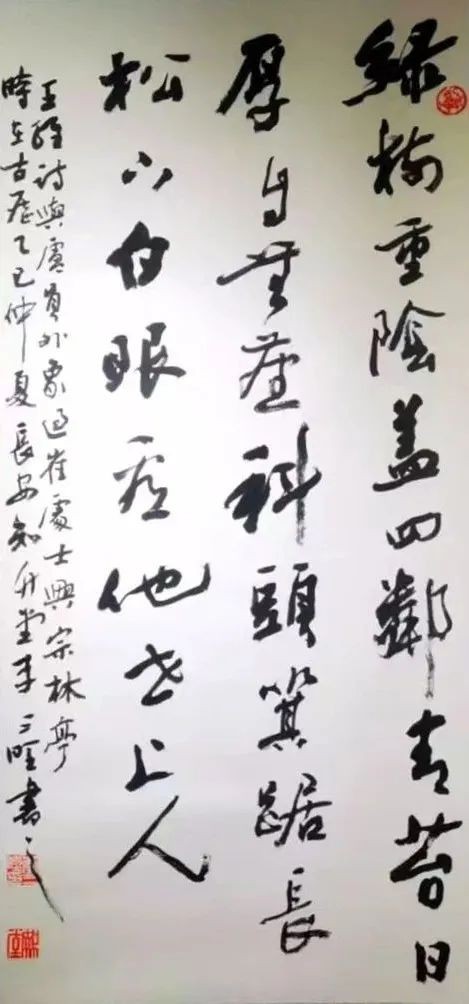 緑樹重陰盖四鄰青苔日
厚自無塵科頭箕踞長
松下白眼看他世上人
王維詩與盧員外象過崔處士興宗林亭
時在古歷乙巳仲夏長安知堂王三書之